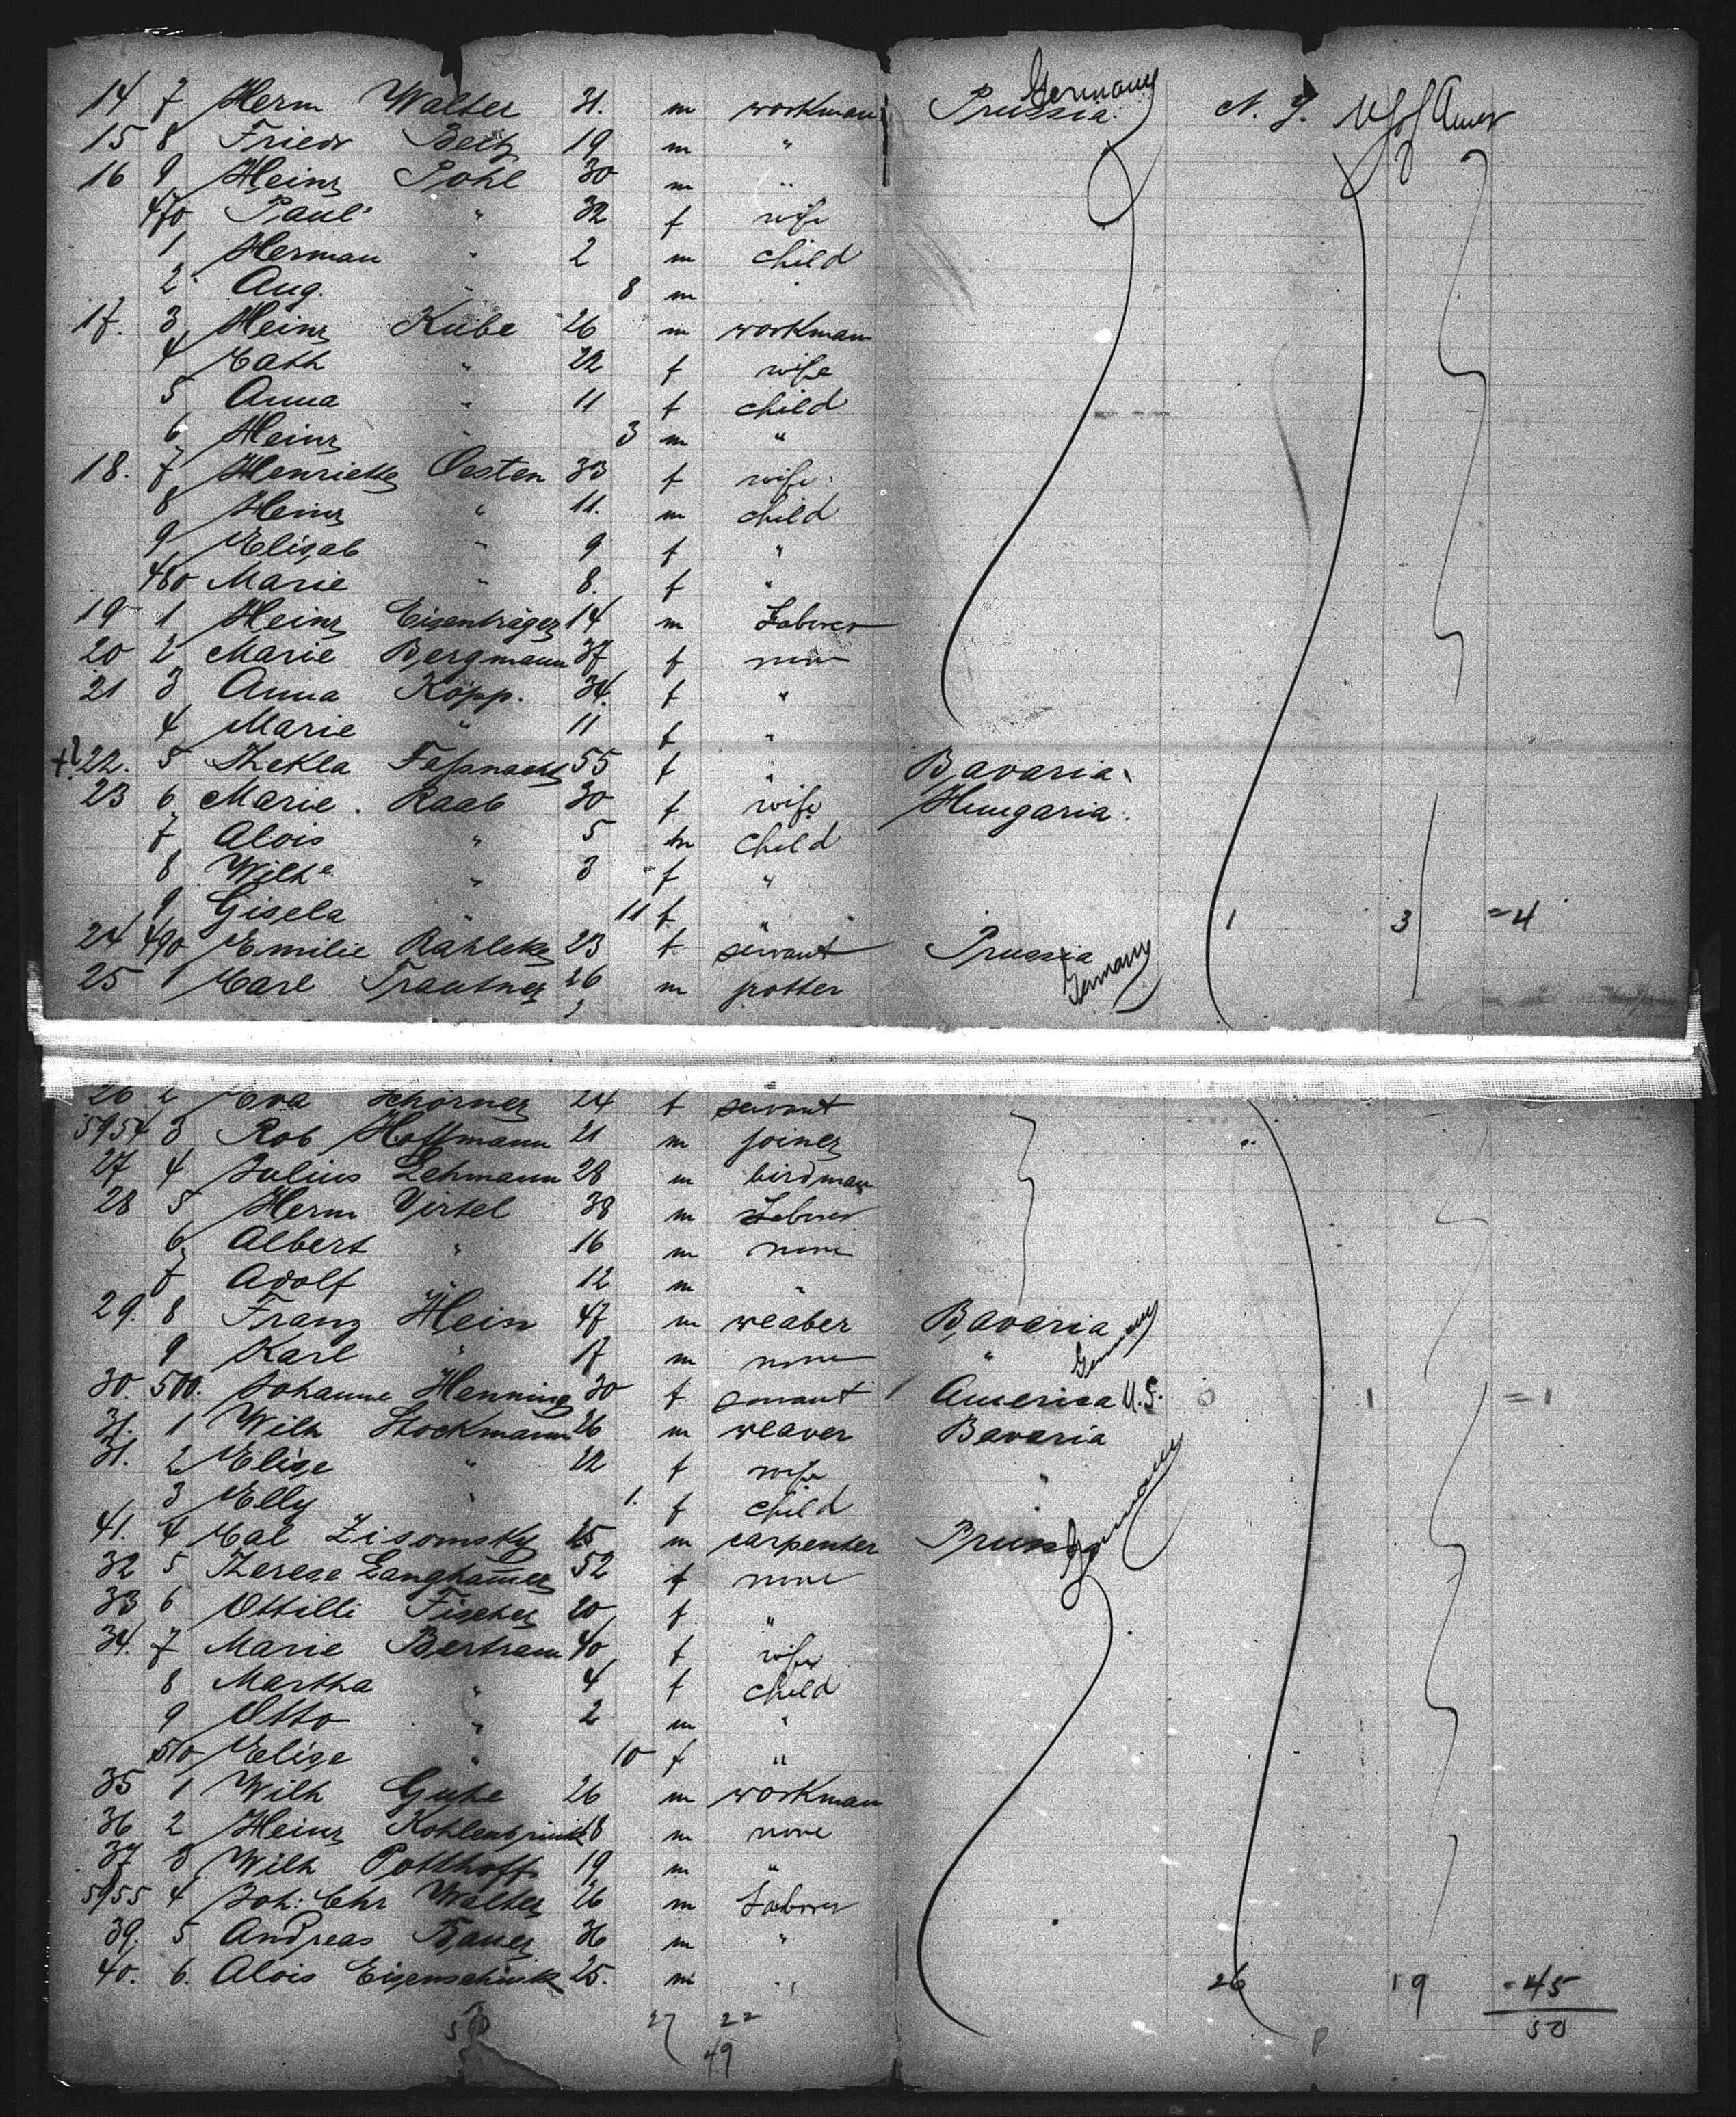 14 7 Herm Walter 31. m workman Prussia Germany N.Y. U S of Amer
15 8 Friedr Beltz 19 m "
16 9 Heinr Pohl 30 m "
470 Paul " 32 f wife
1 Herman " 2 m child
2 Aug. " 8 m
17. 3 Heinr Kube 26 m workman
4 Cath " 22 f wife
5 Anna " 11 f child
6 Heinr " 3 m "
18. 7 Henriette Oesten 33 f wife
8 Heinr " 11. m child
9 Elisab " 9 f "
480 Marie " 8. f "
19 1 Heinr Eisenträger 14 m Laborer
20 2 Marie Bergmann 37 f none
21 3 Anna Kopp. 34 f "
4 Marie " 11 f "
22. 5 Thekla Faßnacht 55 f " Bavaria
23 6 Marie. Raab 30 f wife Hungaria.
7 Alois " 5 m child
8 Wilhe " 3 f "
9 Gisela " 11 f " 1 3 =4
24 490 Emilie Rahleke 23 f servant Prussia
25 1 Carl Trautner 26 m potter Germany
26 2 Eva Schörner 24 f servant
5954 3 Rob Hoffmann 21 m joiner "
27 4 Julius Lehmann 28 m birdman
28 5 Herm Virtel 38 m Laborer
6 Albert " 16 m none
7 Adolf " 12 m "
29. 8 Franz Hein 47 m weaber Bavaria
9 Karl " 17 m none " Germany
30. 500. Johanne Henning 30 f servant America U.S. 0 1 =1
31. 1 Wilh Stockmann 26 m weaver Bavaria
31. 2 Elise " 22 f wife "
3 Elly " 1. f child " Germany
41. 4 Cal Zisomsky 25 m carpenter Prussia
32 5 Therese Langhammer 52 f none
33 6 Ottilli Fischer 20 f "
34. 7 Marie Bertram 40 f wife
8 Martha " 4 f child
9 Otto " 2 m "
510 Elise " 10 f "
35 1 Wilh Guhe 26 m workman
36 2 Heinr Kohlenbrink 18 m none
37 3 Wilh Potthoff 19 m "
5955 4 Joh. Chr Walter 26 m Laborer
39. 5 Andreas Bauer 36 m "
40. 6. Alois Eisenschink 25. m " 26 19 =45
50 27 22 50
49